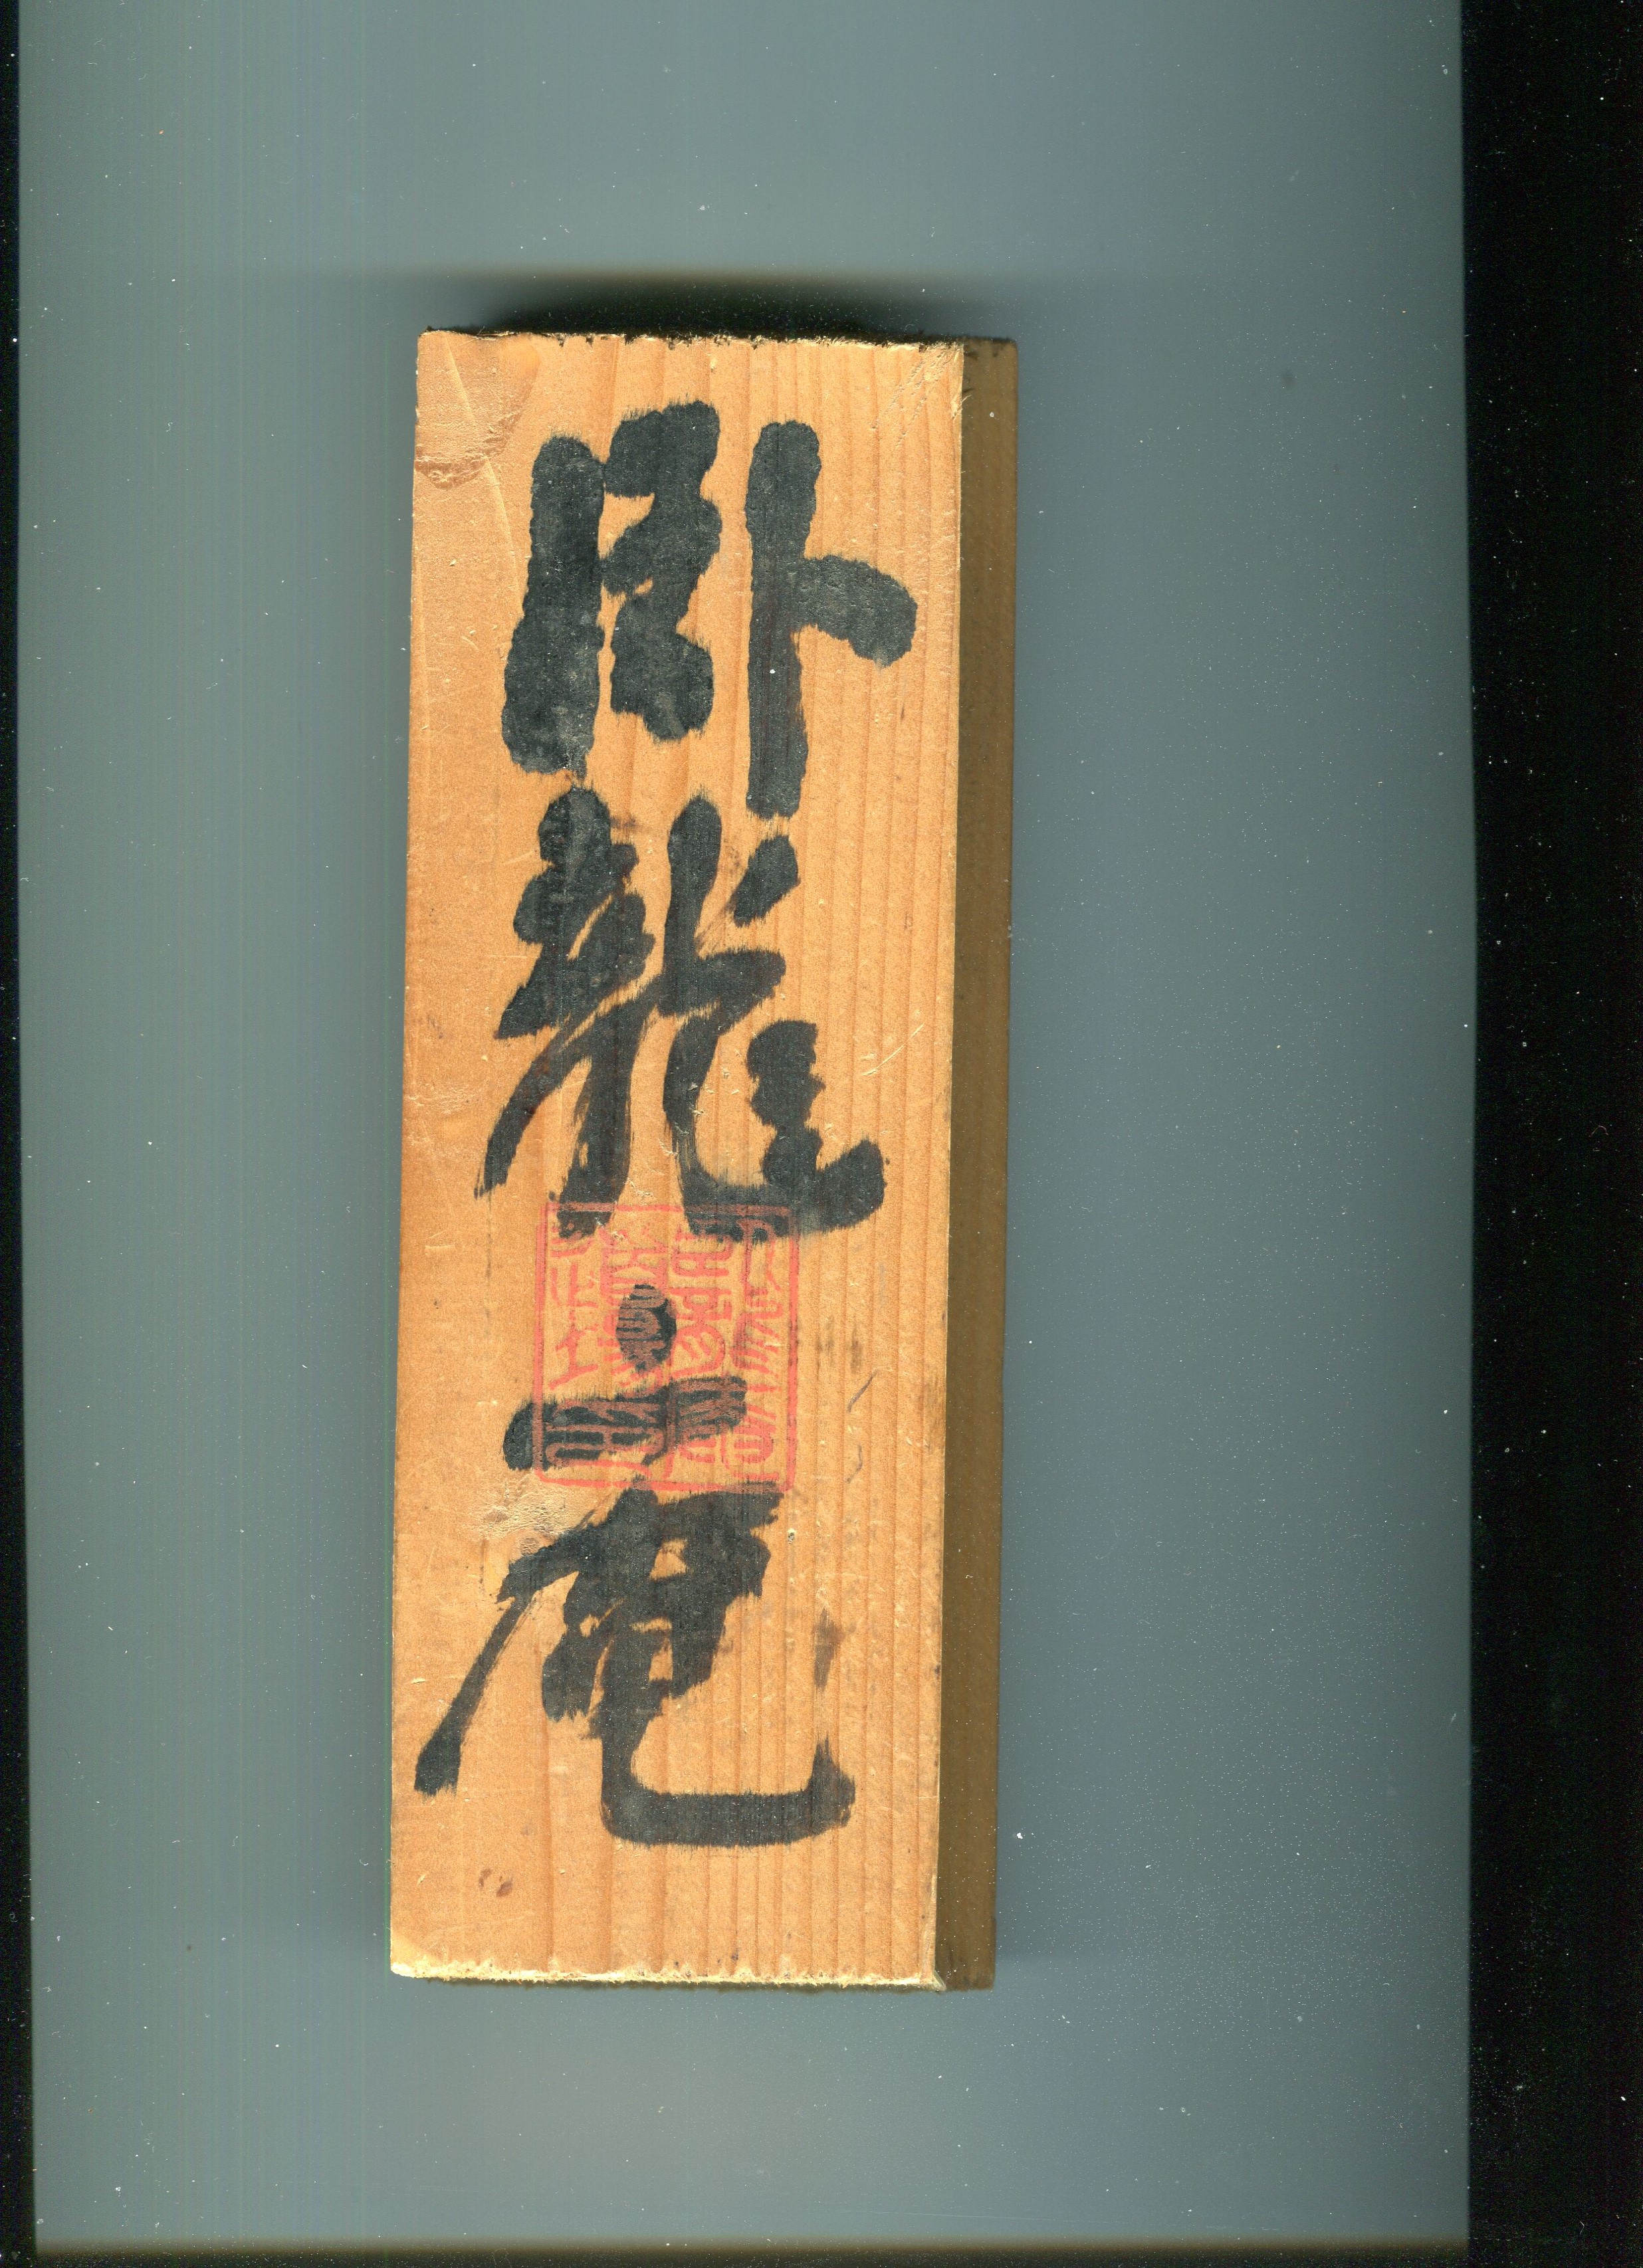 臥龍庵